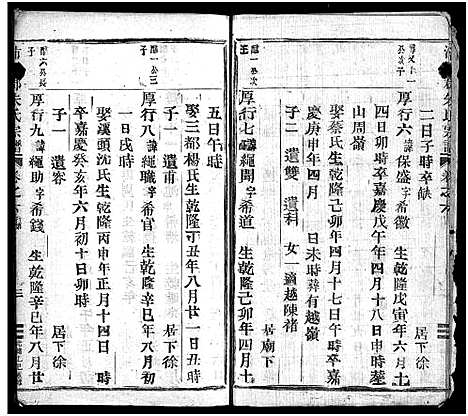 二日子時卒缺
厚行六 諱保盛 字希徽 生乾隆戊寅年六月十
四日卯時卒嘉慶戊午年四月十八日申時塟
山周嶺 居下徐
娶蔡氏生乾隆己卯年四月十七日午時卒嘉
慶庚申年四月 日未時葬有越嶺
子二 遺雙 遺科 女一 適越陳褚
居廟下
厚行七 諱繩開 字希道 生乾隆己卯年四月十
五日午時
娶三都楊氏生乾隆丁丑年八月廿一日丑時
子一 居下徐
厚行八 諱 字希官 生乾隆辛巳年八月初
一日戌時
娶溪頭沈氏生乾隆丙申年正月十四日 時
卒嘉慶癸亥年六月初十日卯時
子一 遺容 居下徐
厚行九 諱繩助 字希錢 生乾隆辛巳年八月廿
朱氏宗譜 卷之